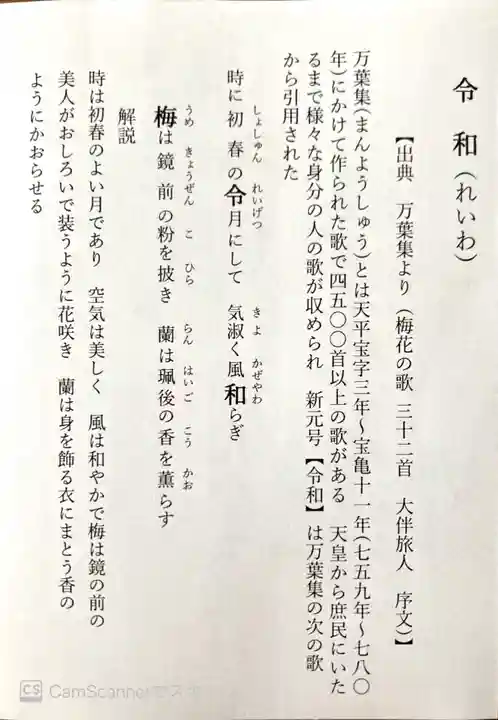 令和(れいわ)
【出典　万葉集より（梅花の歌　三十二首　大伴旅人　序文）】
万葉集(まんようしゅう)とは天平宝字三年～宝亀十一年(七五九年～七八〇
年)にかけて作られた歌で四五〇〇首以上の歌がある　天皇から庶民にいた
るまで様々な身分の人の歌が収められ　新元号【令和】は万葉集の次の歌
から引用された
しょしゅん　れいげつ　きよ　かぜやわ
時に初春の令月にして　気淑く風和らぎ
うめ　きょうぜん　こ　ひら　らん　はいご　こう　かお
梅は鏡前の粉を披き　蘭は珮後の香を薫らす
解説
時は初春のよい月であり　空気は美しく　風は和やかで梅は鏡の前の
美人がおしろいで装うように花咲き　蘭は身を飾る衣にまとう香の
ようにかおらせる
CS CamScanner